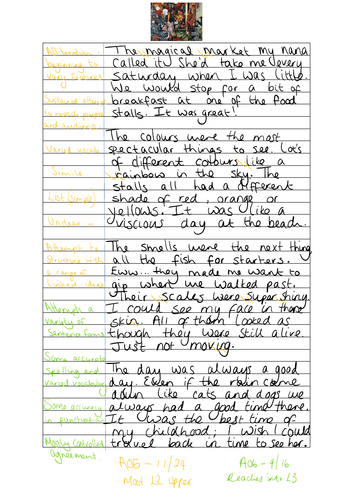 The magical market my nana
called it. She'd take me every
saturday when I was little.
We would stop for a bit of
breakfast at one of the food
stalls. It was great!
The colours were the most
spectacular things to see. Lots
of different colours like a
rainbow in the sky. The
stalls all had a different
shade of red, orange or
yellows. It was like a
viscious day at the beach.
The smells were the next thing
all the fish for starters.
Eww... they made me want to
gip when we walked past.
Their scales were super shiny
I could see my face in there
skin. All of them looked as
though they were still alive.
Just not moving.
The day was always a good
day. Even if the rain came
down like cats and dogs we
always had a good time there.
It was the best time of
my childhood; I wish I could
travel back in time to see her.
Attempt to
structure with
a range of
linked ideas
Varied vocab
Simile
List (simple)
Unclear -
Attempt a
variety of
sentence forms
Some accurate
spelling and
varied vocabulary
Some accuracy
in punctuation
Mostly controlled
agreement.
AO5 - 11/24
Most L2 Upper
AO6 - 9/16
Reaches into L3